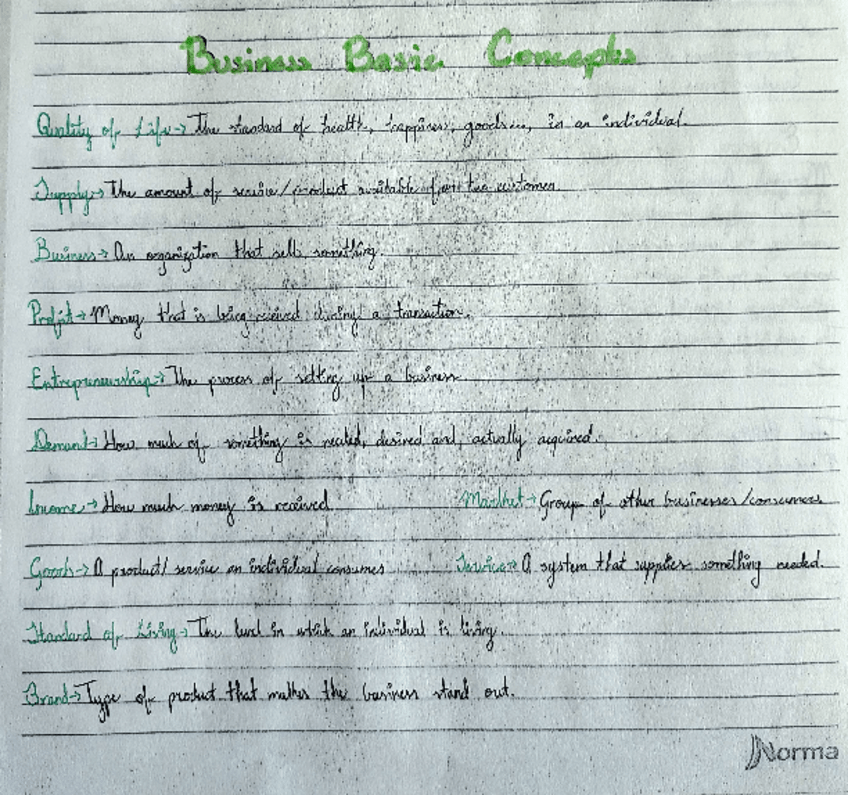 Business Basic Concepts
Quality of Life→The standard of health, happiness, goods..., in an individual.
Supply→The amount of service/product available for the customer.
Business→An organization that sells something.
Profit→Money that is being received during a transaction.
Entrepreneurship→The process of setting up a business.
Demand→How much of something is needed, desired and, actually acquired.
Income→How much money is received Market→Group of other businesses/consumers
Goods→A product/service an individual consumes Service→A system that supplies something needed.
Standard of Living→The level in which an individual is living.
Brand→Type of product that makes the business stand out.
Norma